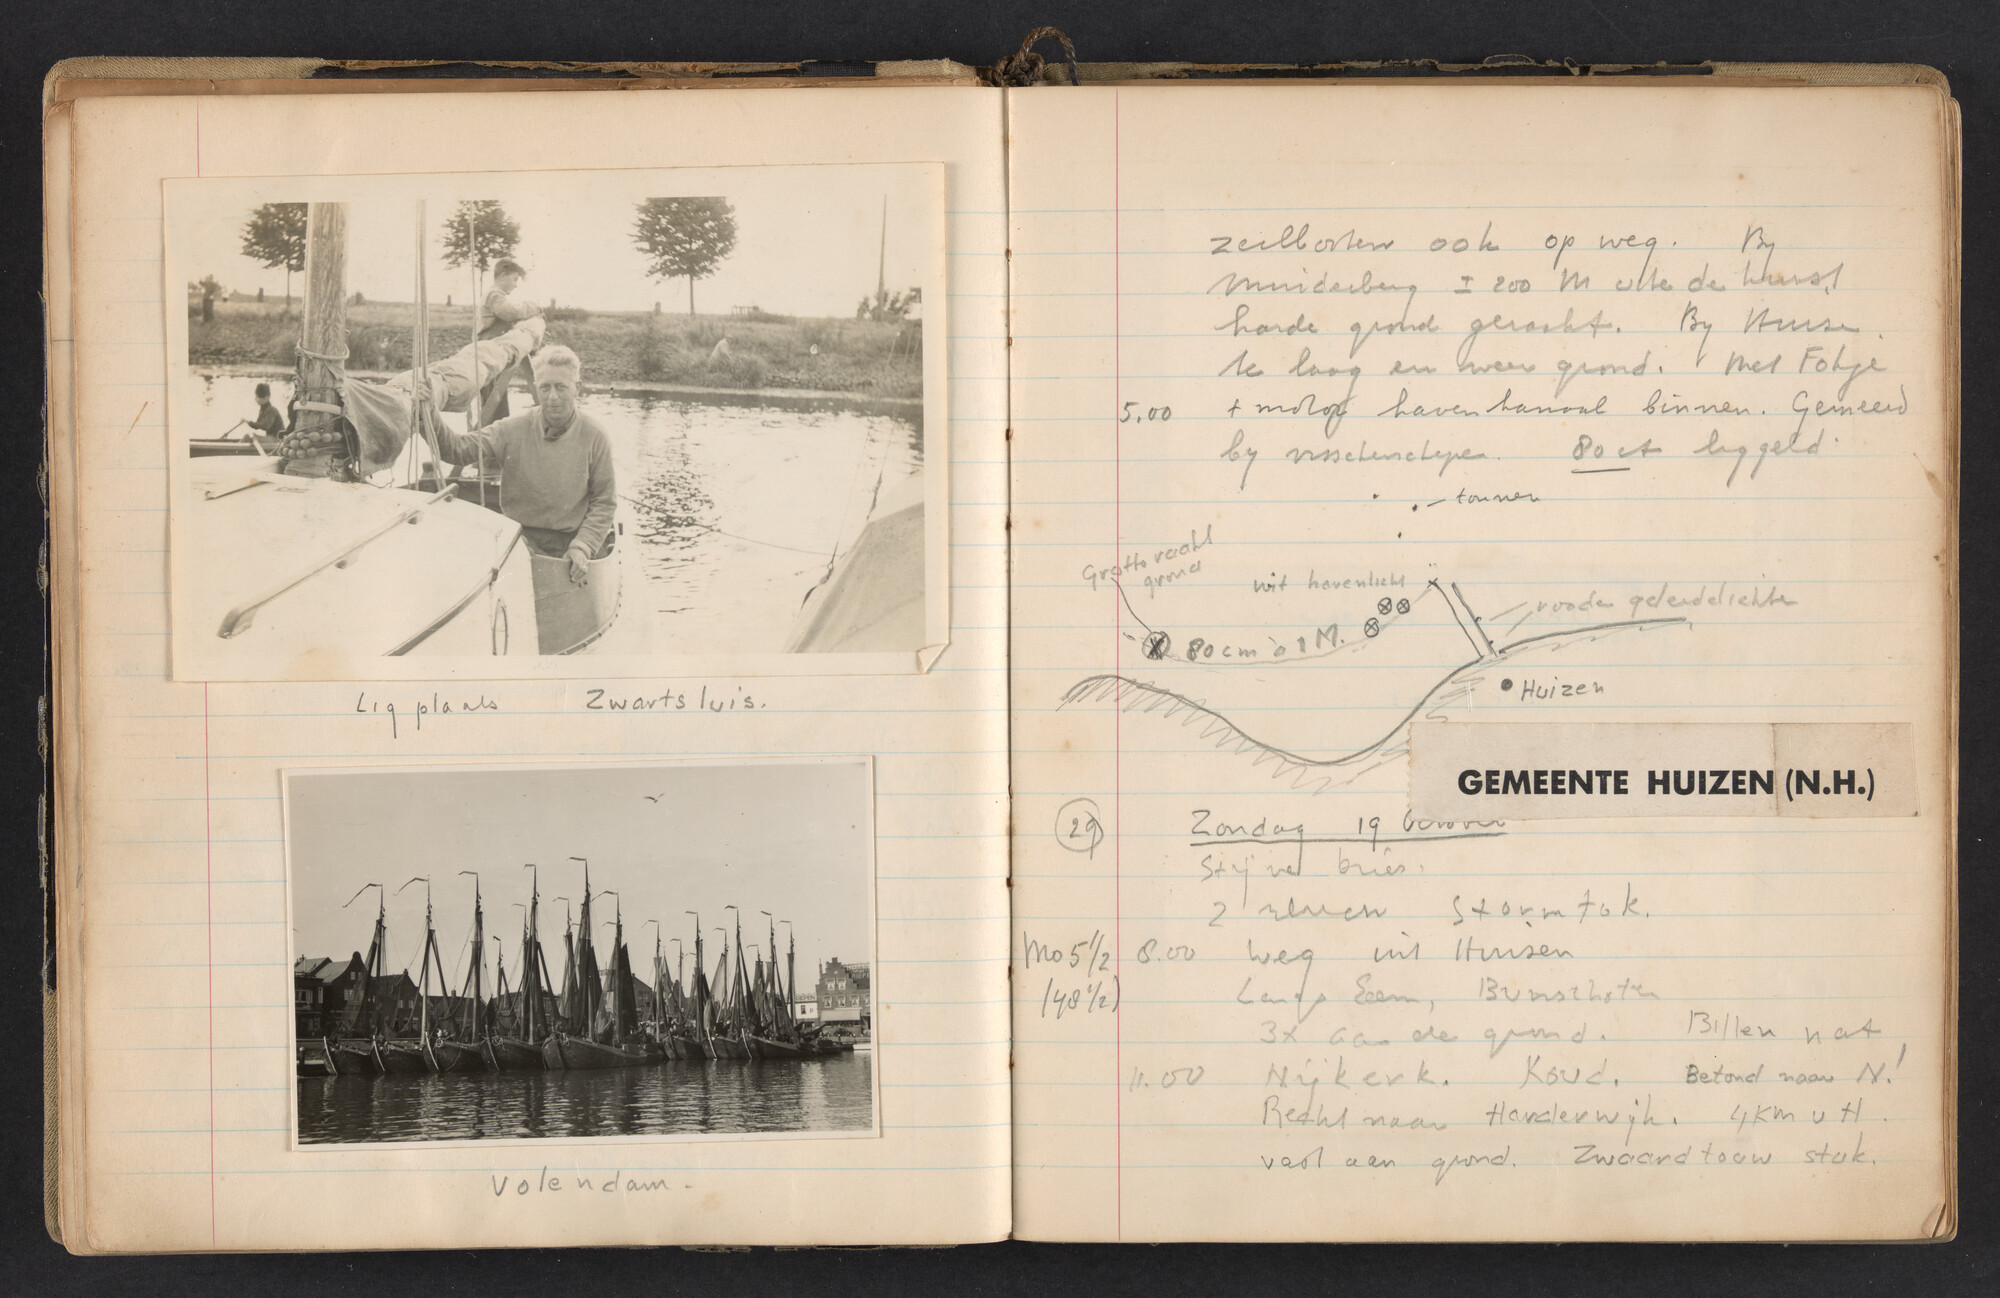 Ligplaats Zwartsluis.
Volendam.
zeilboten ook op weg. By
Muiderberg ± 200 M uit de kust
harde grond geraakt. By
te laag en weer grond. Met Fokje
5.00 + motor havenkanaal binnen. Gemeerd
by visschersschepen. 80 ct liggeld.
tonnen
Grotto raakt
grond
wit havenlicht
roode geleidelichten
80 cm à 1 M.
Huizen
GEMEENTE HUIZEN (N.H.)
29 Zondag 19 October
Stijve bries.
2 reven Stormfok.
Mo 5 1/2 8.00 weg uit Huizen
(48 1/2) Langs Eem, Bunschoten
3x aan de grond. Billen nat
11.00 Nijkerk. Koud. Betond naar N.!
Recht naar Harderwijk. 4 KM v H.
vast aan grond. Zwaardtouw stuk.